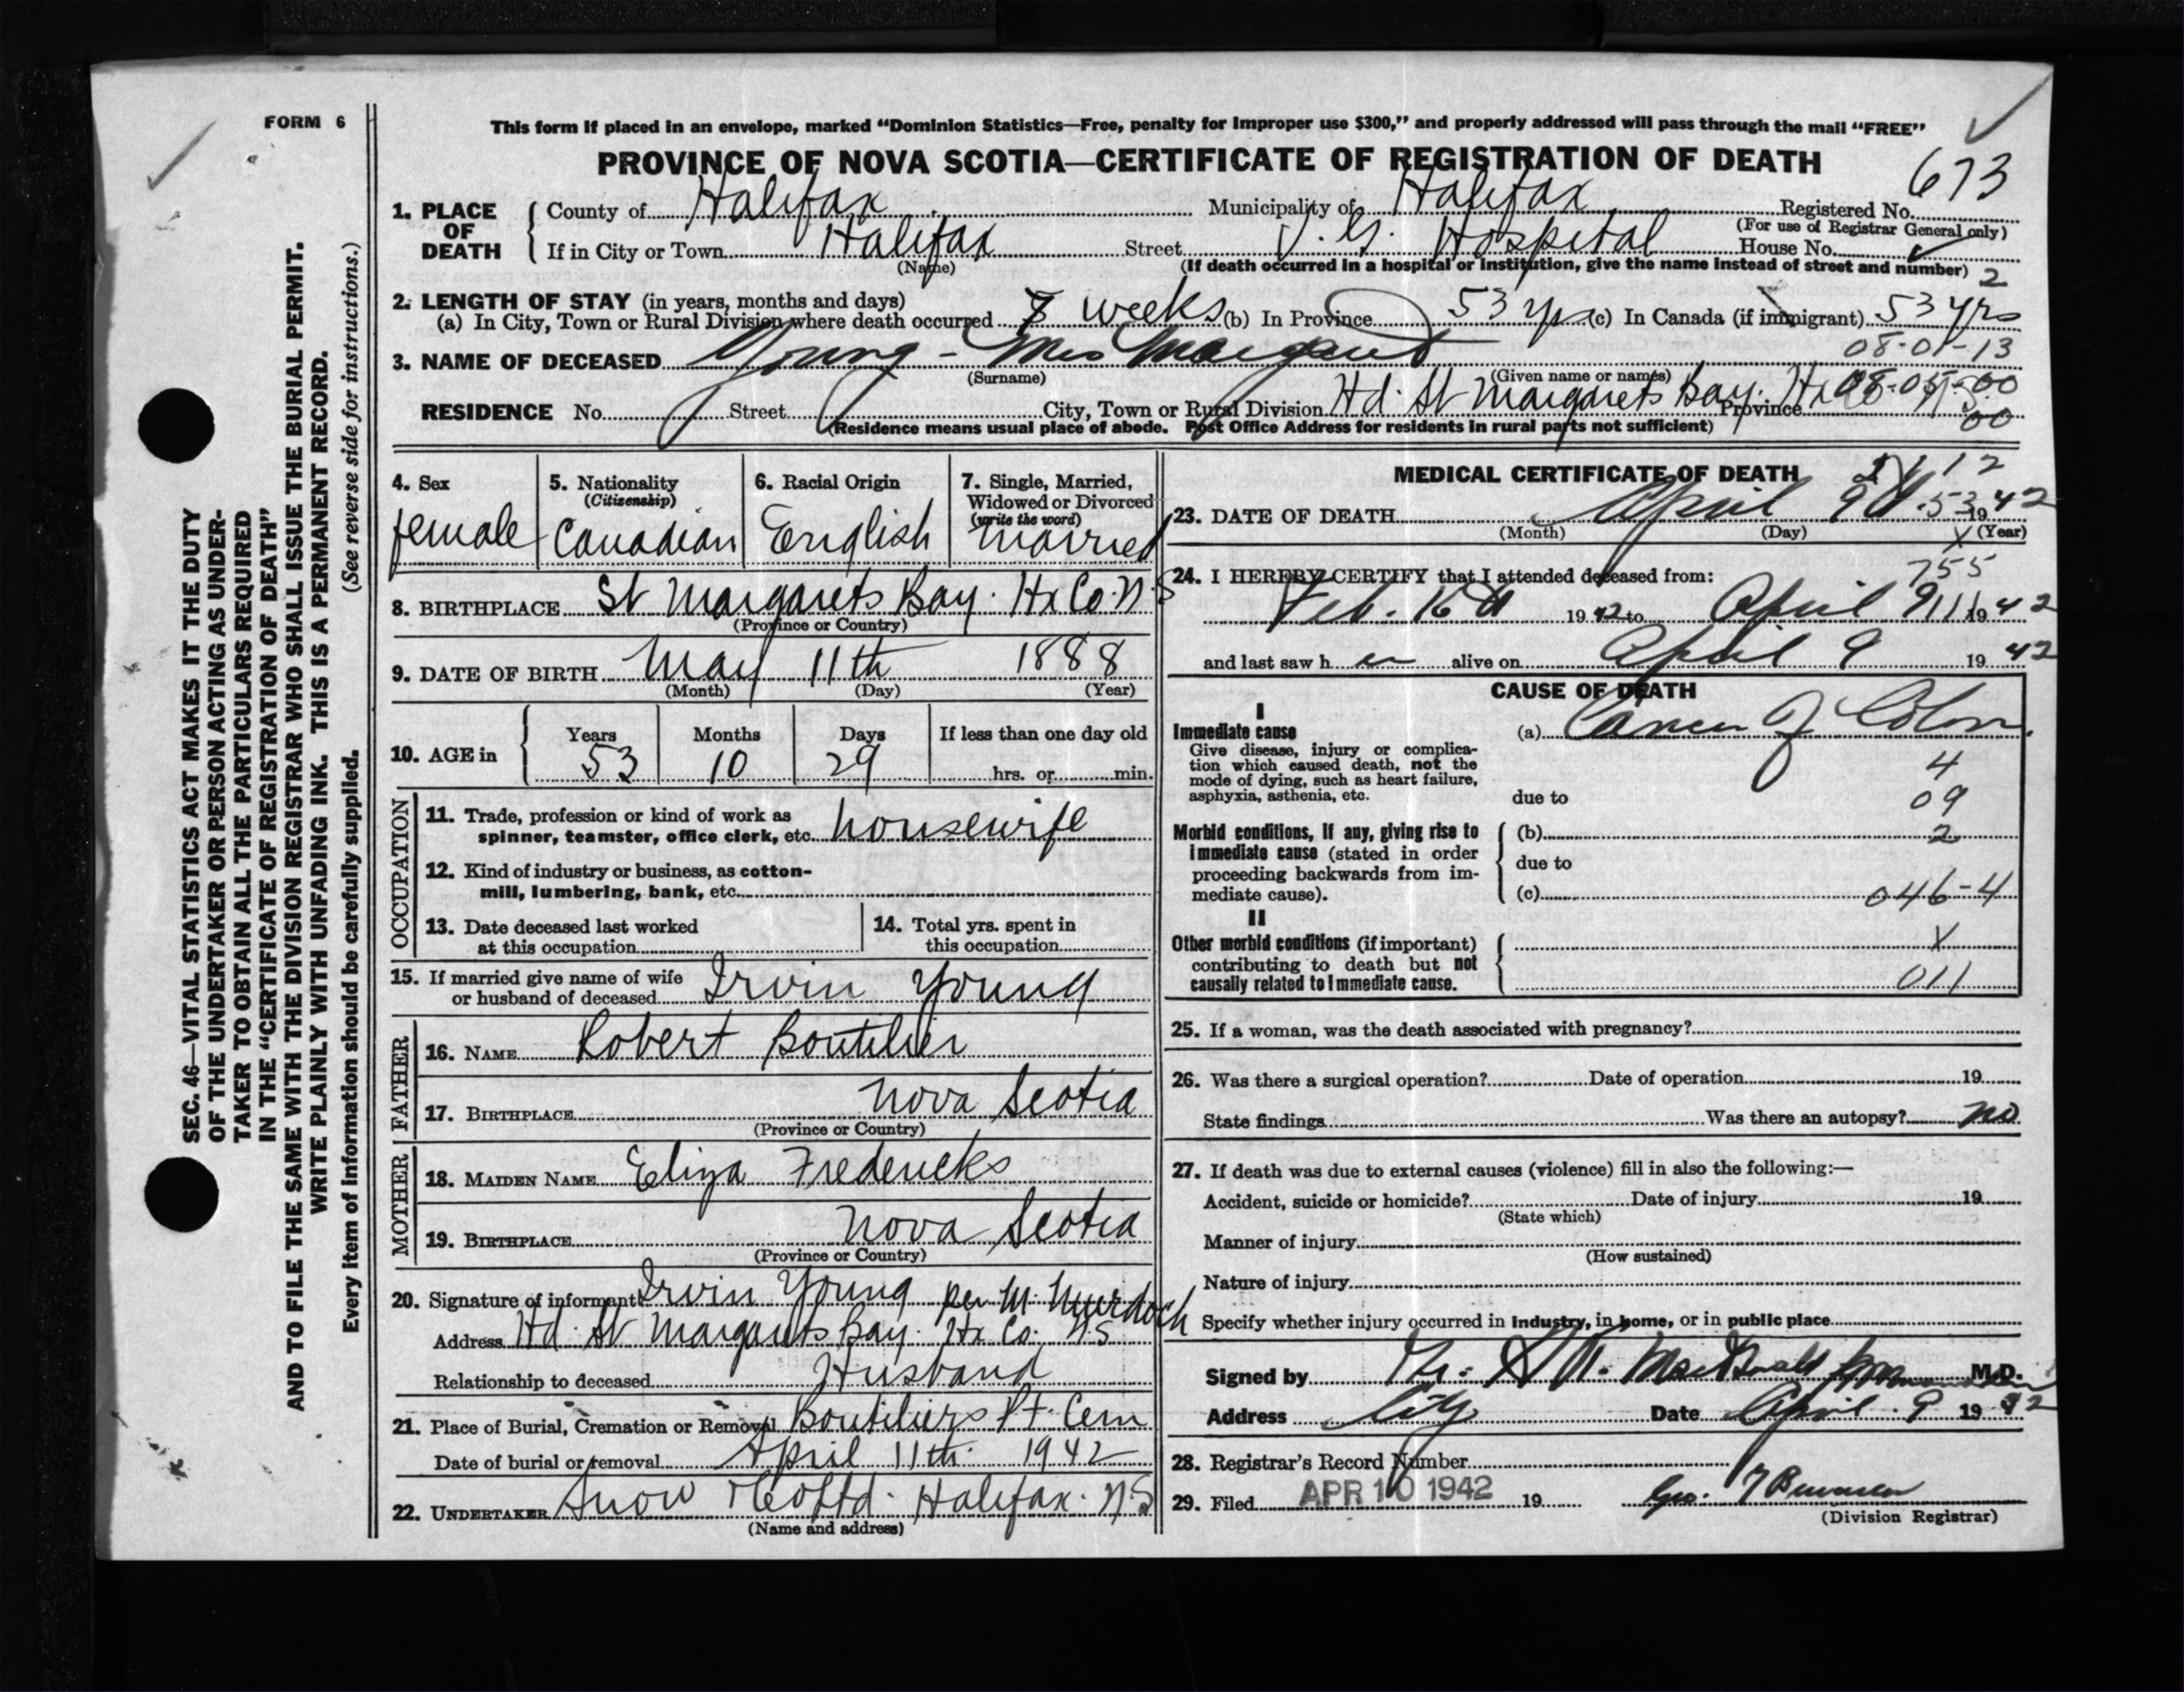 FORM 6
This form if placed in an envelope, marked “Dominion Statistics—Free, penalty for improper use $300,” and properly addressed will pass through the mail “FREE”
PROVINCE OF NOVA SCOTIA—CERTIFICATE OF REGISTRATION OF DEATH
673
1. PLACE OF DEATH
County of Halifax Municipality of Halifax Registered No.
(For use of Registrar General only)
If in City or Town Halifax Street V. G. Hospital House No.
(Name) (If death occurred in a hospital or institution, give the name instead of street and number) 2
2. LENGTH OF STAY (in years, months and days)
(a) In City, Town or Rural Division where death occurred weeks (b) In Province 53 yrs (c) In Canada (if immigrant) 53 yrs
08-01-13
3. NAME OF DECEASED Young - Mrs Margaret
(Surname) (Given name or names)
RESIDENCE No. Street City, Town or Rural Division Hd. St Margarets Bay. Hx Province
00
(Residence means usual place of abode. Post Office Address for residents in rural parts not sufficient)
4. Sex
female
5. Nationality
(Citizenship)
Canadian
6. Racial Origin
English
7. Single, Married,
Widowed or Divorced
(write the word)
married
8. BIRTHPLACE St Margarets Bay. Hx Co. N.S
(Province or Country)
9. DATE OF BIRTH May 11th 1888
(Month) (Day) (Year)
10. AGE in
Years Months Days If less than one day old
53 10 29 hrs. or min.
OCCUPATION
11. Trade, profession or kind of work as
spinner, teamster, office clerk, etc. housewife
12. Kind of industry or business, as cotton-
mill, lumbering, bank, etc.
13. Date deceased last worked
at this occupation
14. Total yrs. spent in
this occupation
15. If married give name of wife
or husband of deceased Irvin Young
FATHER
16. NAME Robert Boutilier
17. BIRTHPLACE Nova Scotia
(Province or Country)
MOTHER
18. MAIDEN NAME Eliza Fredericks
19. BIRTHPLACE Nova Scotia
(Province or Country)
20. Signature of informant Irvin Young per M. Murdoch
Address Hd. St Margarets Bay. Hx Co. N.S
Relationship to deceased Husband
21. Place of Burial, Cremation or Removal Boutiliers Pt. Cem
Date of burial or removal April 11th 1942
22. UNDERTAKER Snow & Co Ltd. Halifax. N.S
(Name and address)
MEDICAL CERTIFICATE OF DEATH
23. DATE OF DEATH April 9 1942
(Month) (Day) (Year)
24. I HEREBY CERTIFY that I attended deceased from:
755
Feb. 16 1942 to April 9 1942
and last saw h er alive on April 9 19 42
CAUSE OF DEATH
I
Immediate cause
Give disease, injury or complica-
tion which caused death, not the
mode of dying, such as heart failure,
asphyxia, asthenia, etc.
(a) Cancer of Colon.
4
due to 09
Morbid conditions, if any, giving rise to
immediate cause (stated in order
proceeding backwards from im-
mediate cause).
(b) 2
due to
(c) 046-4
II
Other morbid conditions (if important)
contributing to death but not
causally related to immediate cause.
X
011
25. If a woman, was the death associated with pregnancy?
26. Was there a surgical operation? Date of operation 19
State findings Was there an autopsy? no
27. If death was due to external causes (violence) fill in also the following:—
Accident, suicide or homicide? Date of injury 19
(State which)
Manner of injury
(How sustained)
Nature of injury
Specify whether injury occurred in industry, in home, or in public place
Signed by MacDonald M.D.
Address City Date April 9 19 42
28. Registrar's Record Number
29. Filed APR 10 1942 19 Geo.
(Division Registrar)
SEC. 46—VITAL STATISTICS ACT MAKES IT THE DUTY
OF THE UNDERTAKER OR PERSON ACTING AS UNDER-
TAKER TO OBTAIN ALL THE PARTICULARS REQUIRED
IN THE “CERTIFICATE OF REGISTRATION OF DEATH”
AND TO FILE THE SAME WITH THE DIVISION REGISTRAR WHO SHALL ISSUE THE BURIAL PERMIT.
WRITE PLAINLY WITH UNFADING INK. THIS IS A PERMANENT RECORD.
Every item of information should be carefully supplied. (See reverse side for instructions.)